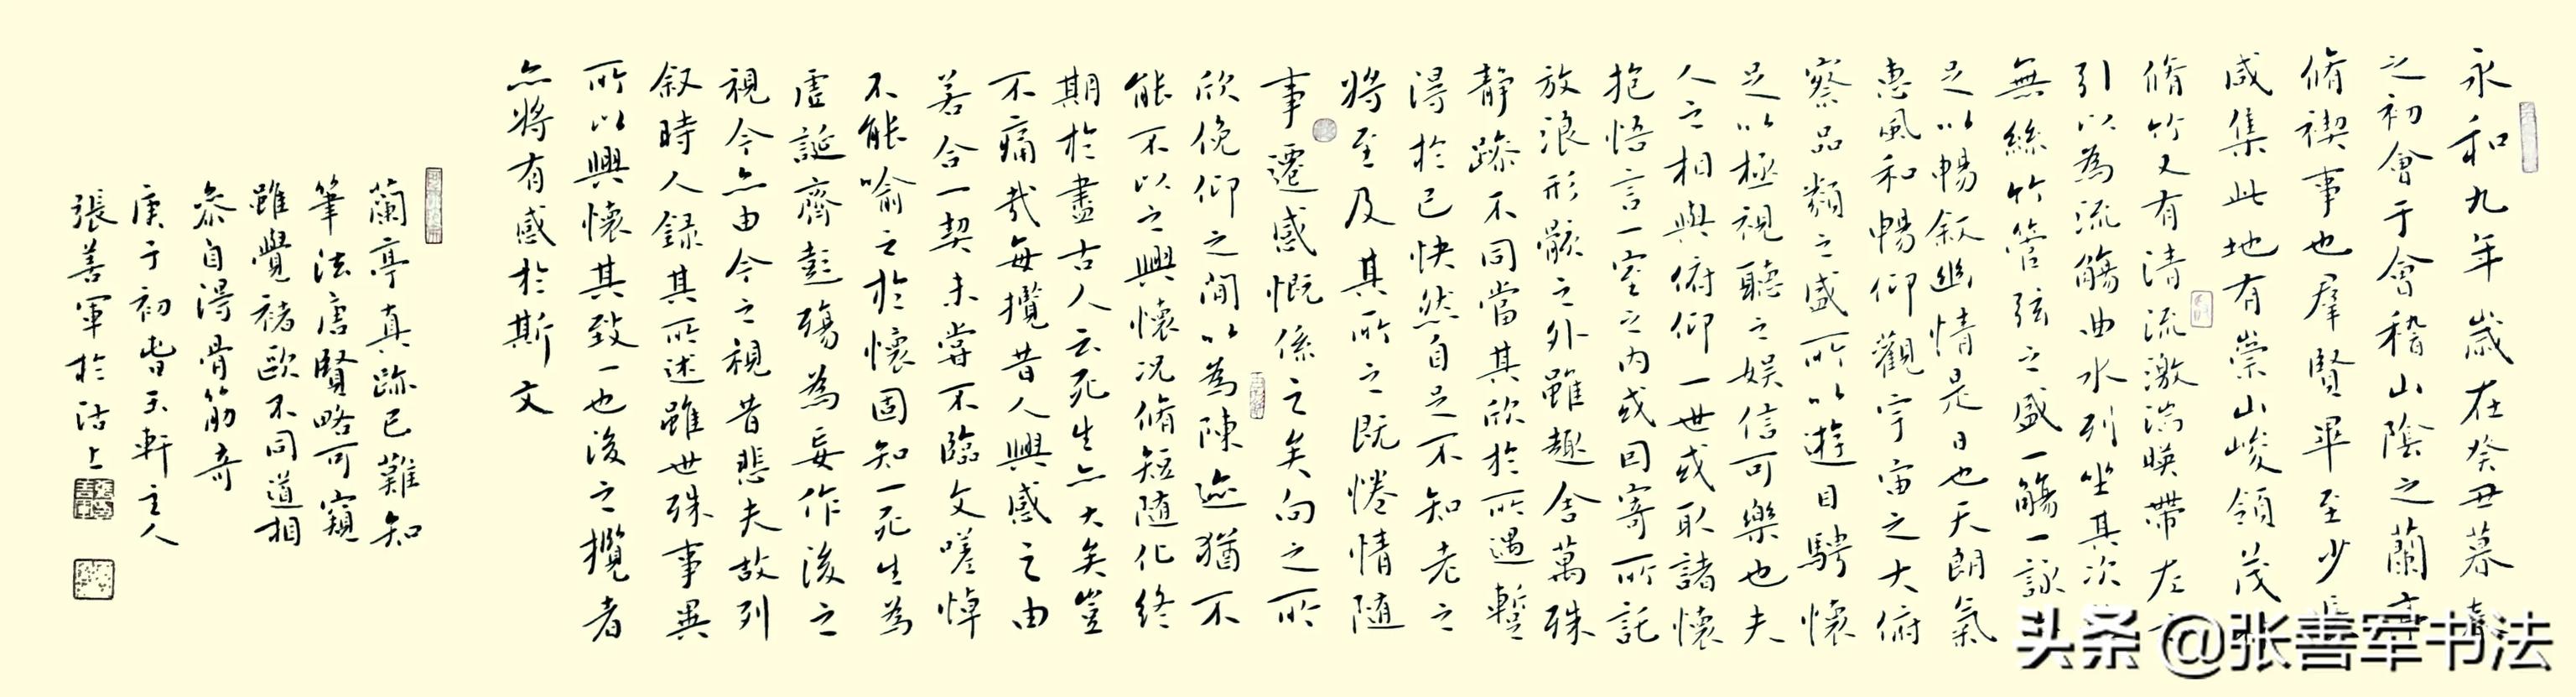 永和九年歲在癸丑暮春
之初會于會稽山陰之蘭亭
脩禊事也羣賢畢至少長
咸集此地有崇山峻領茂
脩竹又有清流激湍暎帶左
引以為流觴曲水列坐其次
無絲竹管弦之盛一觴一詠
足以暢叙幽情是日也天朗氣
惠風和暢仰觀宇宙之大俯
察品類之盛所以遊目騁懷
足以極視聽之娛信可樂也夫
人之相與俯仰一世或取諸懷
抱悟言一室之內或因寄所託
放浪形骸之外雖趣舍萬殊
靜躁不同當其欣於所遇暫
得於己快然自足不知老之
將至及其所之既惓情隨
事遷感慨係之矣向之所
欣俛仰之間以為陳迹猶不
能不以之興懷況脩短隨化終
期於盡古人云死生亦大矣豈
不痛哉每攬昔人興感之由
若合一契未嘗不臨文嗟悼
不能喻之於懷固知一死生為
虛誕齊彭殤為妄作後之
視今亦由今之視昔悲夫故列
叙時人錄其所述雖世殊事異
所以興懷其致一也後之攬者
亦將有感於斯文
蘭亭真跡已難知
筆法唐賢略可窺
雖覺褚歐不同道相
參自得骨筋奇
庚子初軒主人
張善軍於沽上
头条 @张善军书法